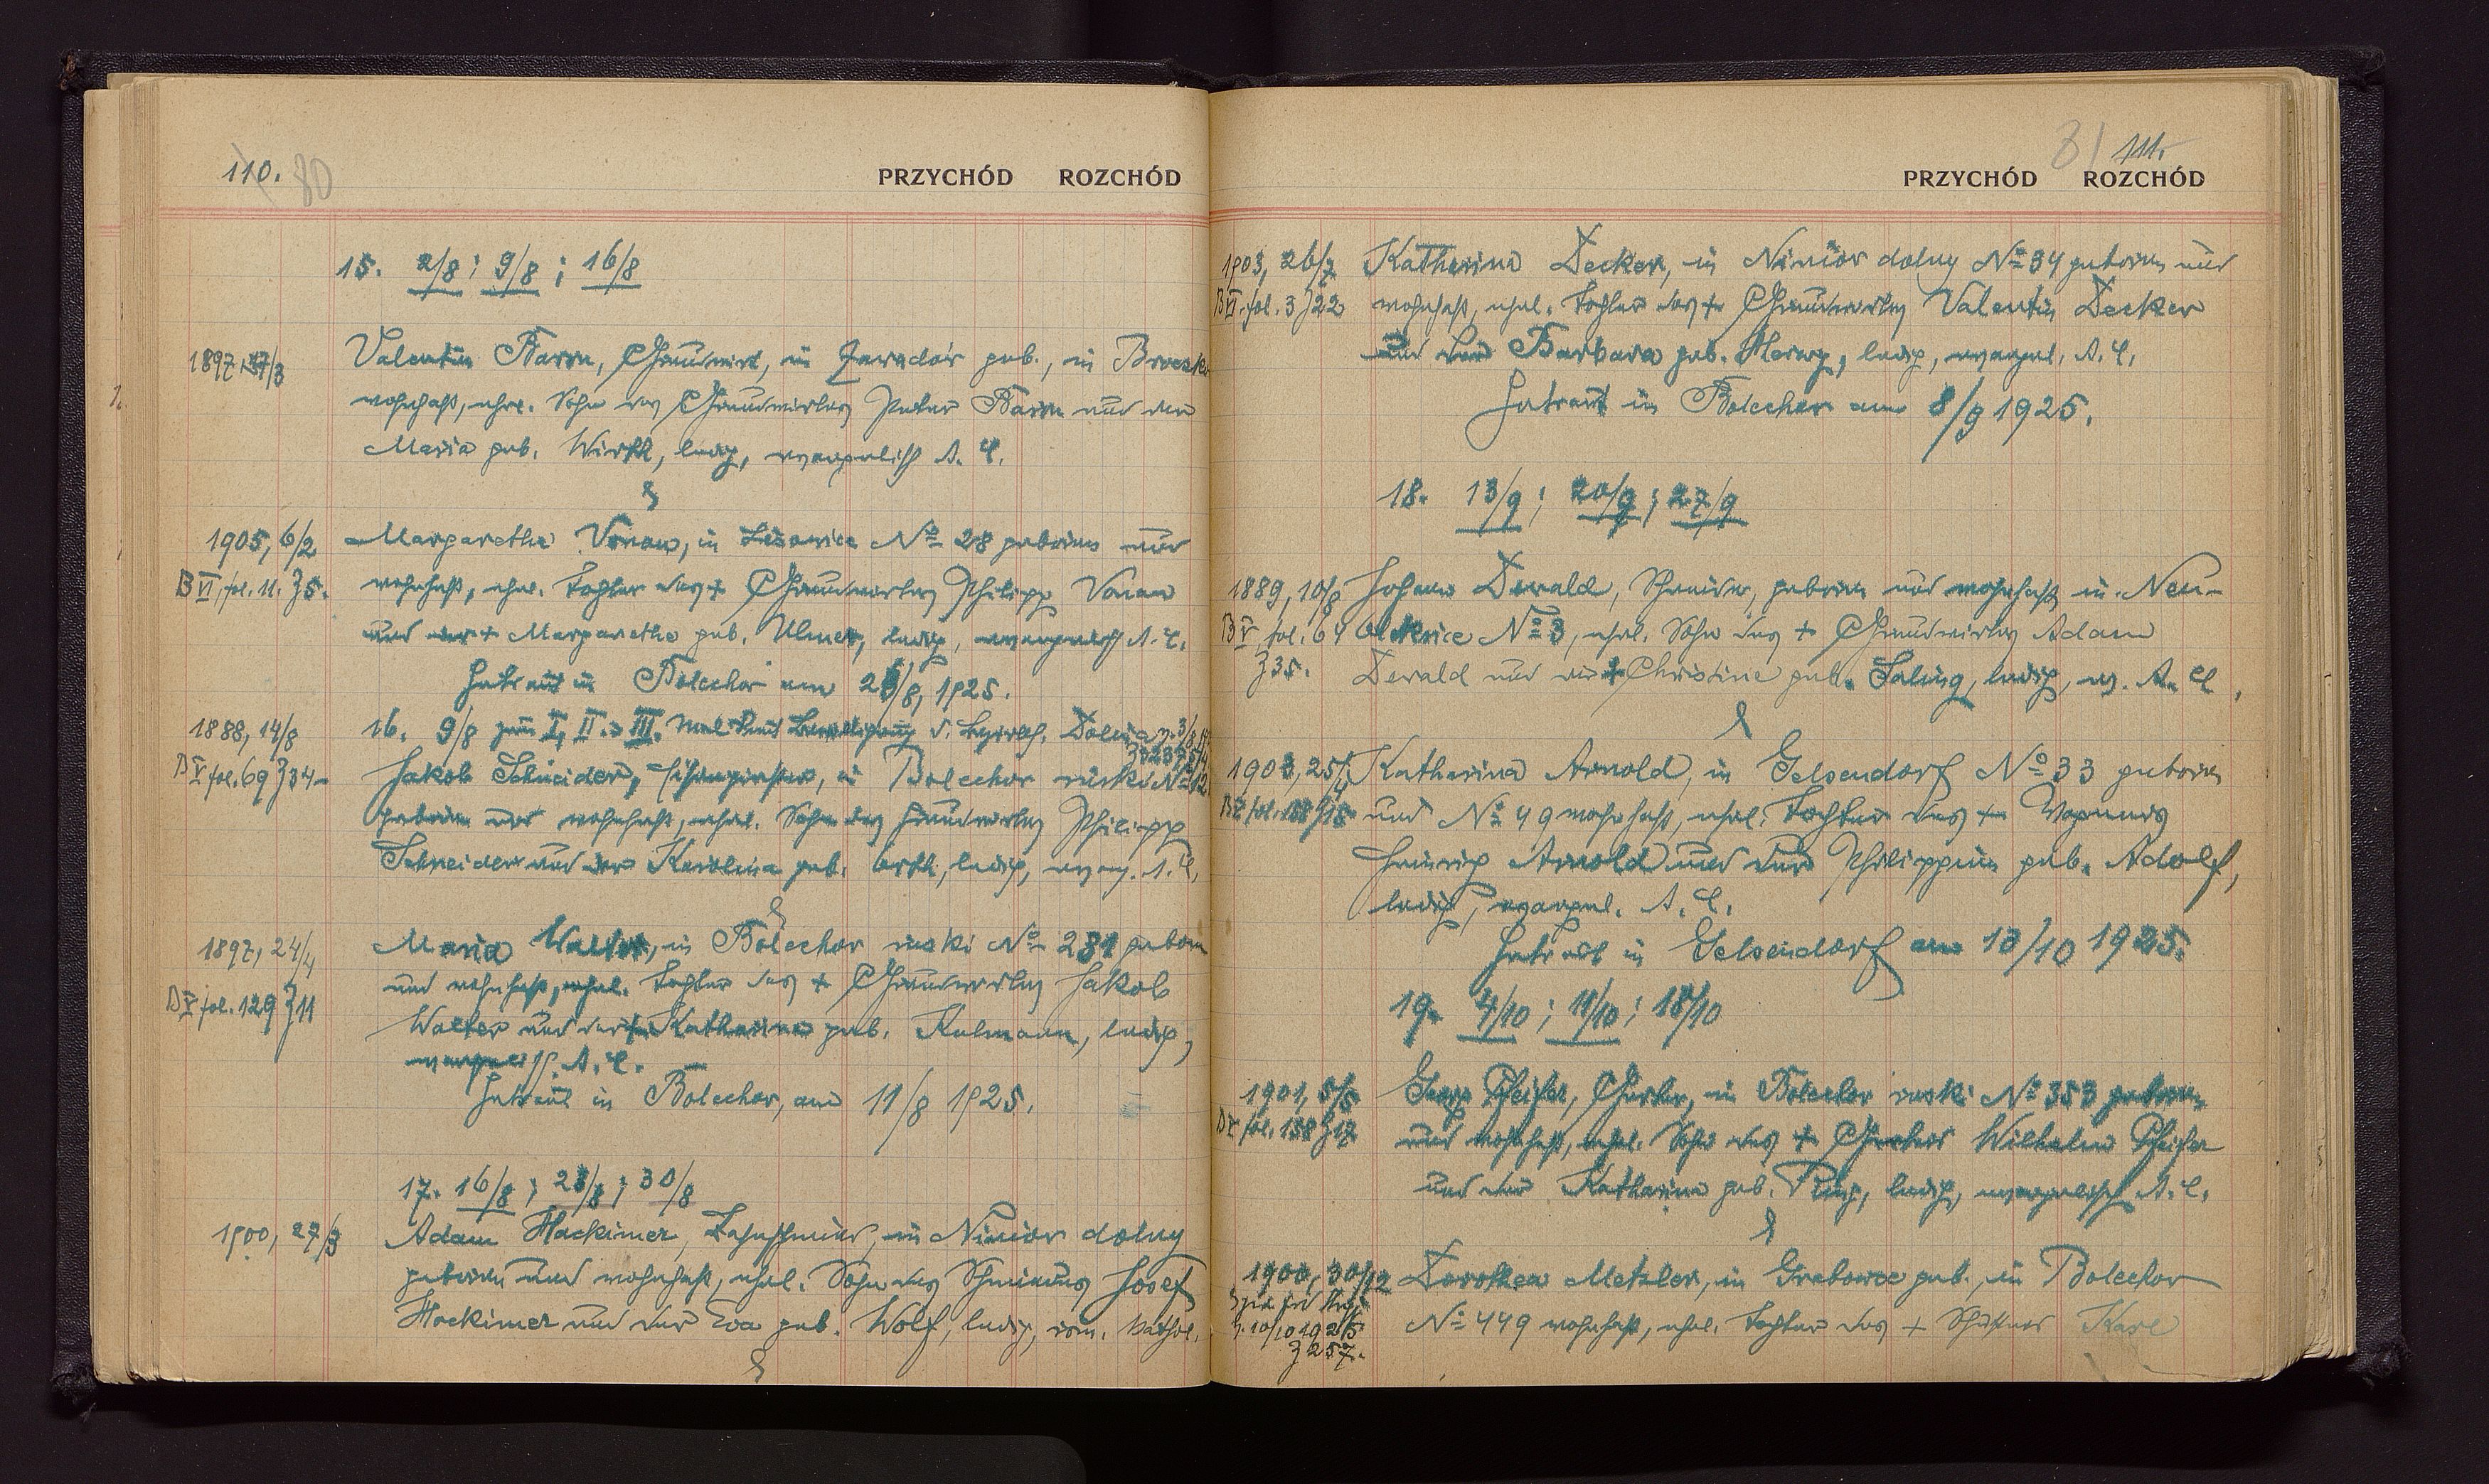 110. 80
PRZYCHÓD ROZCHÓD
15. 2/8; 9/8; 16/8
1897, 17/3 Valentin Baron, Grundwirt, in Zawadów geb., in
wohnhaft, ehel. Sohn des Grundwirtes Peter Baron und der
Maria geb. Wirth, ledig, evangelisch A. C.
&
1905, 6/2 Margarethe Vonau, in No 28 geboren und
B VI, fol. 11. Z 5. wohnhaft, ehel. Tochter des + Grundwirtes Philipp Vonau
und der + Margarethe geb. Ulmer, ledig, evangelisch A. C.
Getraut in Bolechów am /8, 1925.
1888, 14/8 16. 9/8 zum I, II. u III. Mal laut Bewilligung d. Bezirksh. Dolina v. 3/8
B V fol. 69 Z 34 Jakob Schneider, in Bolechów ruski No 12
geboren und wohnhaft, ehel. Sohn des Grundwirtes Philipp
Schneider und der Karolina geb. Orth, ledig, evang. A. C.
&
1897, 24/4 Maria Walter, in Bolechów ruski No 281 geboren
B V fol. 129 Z 11 und wohnhaft, ehel. Tochter des + Grundwirtes Jakob
Walter und der Katharina geb. Kulmann, ledig,
evangelisch. A. C.
Getraut in Bolechów, am 11/8 1925.
17. 16/8; 23/8; 30/8
1900, 27/3 Adam Hackimer, in Niniów dolny
geboren und wohnhaft, ehel. Sohn des Schmiedes Josef
Hackimer und der Eva geb. Wolf, ledig, röm. kathol.
&
81 111.
PRZYCHÓD ROZCHÓD
1903, 26/7 Katharina Decker, in Niniów dolny No 34 geboren und
B VI. fol. 3 Z 22 wohnhaft, ehel. Tochter des + Grundwirtes Valentin Decker
und der Barbara geb. Herzog, ledig, evangel. A. C.
Getraut in Bolechów am 8/9 1925.
18. 13/9; 20/9; 27/9
1889, 10/8 Johann Dewald, Schmied, geboren und wohnhaft in Neu-
B V, fol. 64 Oleksice No 3, ehel. Sohn des + Grundwirtes Adam
Z 35. Dewald und der + Christine geb. Saling, ledig, ev. A. C.
&
1903, 25/4 Katharina Arnold, in Gelsendorf No 33 geboren
und No 49 wohnhaft, ehel. Tochter des + Wagners
Heinrich Arnold und der Philippine geb. Adolf,
ledig, evangel. A. C.
Getraut in Gelsendorf am 13/10 1925.
19. 4/10; 11/10; 18/10
1901, 5/5 Georg Pfeifer, Gerber, in Bolechów ruski No 353 geboren
B V fol. 158 Z 17 und wohnhaft, ehel. Sohn des + Gerbers Wilhelm Pfeifer
und der Katharina geb. ledig, evangelisch A. C.
&
1900, 30/12 Dorothea Metzler, in Grabowce geb., in Bolechów
10/10 1925 No 449 wohnhaft, ehel. Tochter des + Schusters Karl
Z 257.